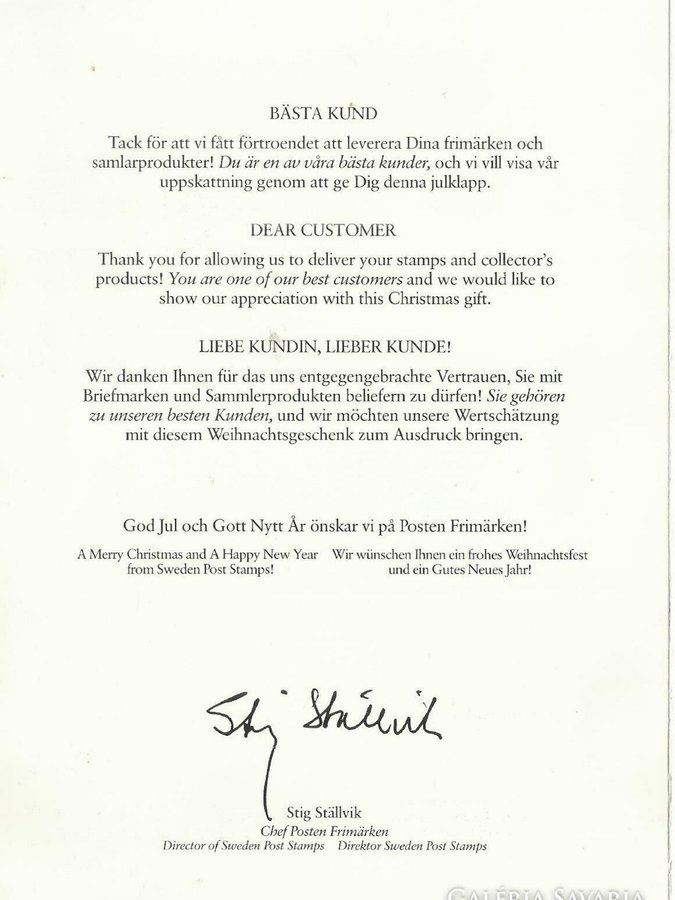 BÄSTA KUND
Tack för att vi fått förtroendet att leverera Dina frimärken och
samlarprodukter! Du är en av våra bästa kunder, och vi vill visa vår
uppskattning genom att ge Dig denna julklapp.
DEAR CUSTOMER
Thank you for allowing us to deliver your stamps and collector's
products! You are one of our best customers and we would like to
show our appreciation with this Christmas gift.
LIEBE KUNDIN, LIEBER KUNDE!
Wir danken Ihnen für das uns entgegengebrachte Vertrauen, Sie mit
Briefmarken und Sammlerprodukten beliefern zu dürfen! Sie gehören
zu unseren besten Kunden, und wir möchten unsere Wertschätzung
mit diesem Weihnachtsgeschenk zum Ausdruck bringen.
God Jul och Gott Nytt År önskar vi på Posten Frimärken!
A Merry Christmas and A Happy New Year
from Sweden Post Stamps!
Wir wünschen Ihnen ein frohes Weihnachtsfest
und ein Gutes Neues Jahr!
Stig Ställvik
Stig Ställvik
Chef Posten Frimärken
Director of Sweden Post Stamps Direktor Sweden Post Stamps
GALÉRIA SAVARIA